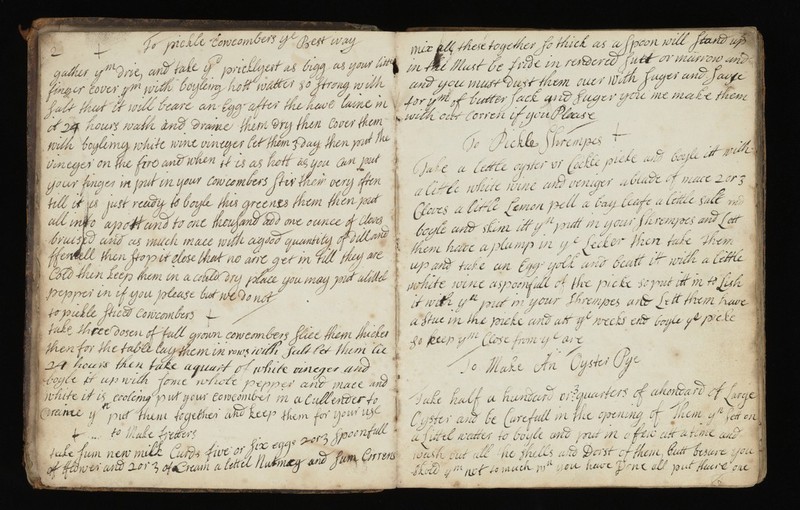 2
To pickle Cowcombers ye Best way
gather ym drie, and take ye pricklyest as bigg as your little
finger cover ym with boyleing hott watter so strong with
salt that it will beare an Egg after the have laine in
it 24 hours wash and draine them dry then cover them
with boyleing white wine vineger let them 5 day then put the
vineger on the fire and when it is as hott as you can put
your finger in put in your cowcombers stir them very often
tell it is just ready to boyle this greenes them then put
all into a pott and to one thousand add one ounce of cloves
bruised and as much mace with a good quantity of dill and
ffennell then stop it close that no aire get in till they are
Cold then keep them in a could dry place you may put a littel
pepper in if you please but we do not
to pickle sliced Cowcombers
take three dosen of full grown cowcombers slice them thicker
then for the table lay them in rows with salt let them lie
24 hours then take a quart of white vineger and
boyle it up with some whole pepper and mace and
while it is cooleing put your concomber in a Cullender to
draine yn put them together and keep them for your use
to Make fretters
take sum new milk Curds five or six eggs 2 or 3 spoonfull
of flower and 2 or 3 of Cream a lettel Nutmeg and sum Correns
mix all these together so thick as a spoon will stand up
in the Must be fride in rendered sutt or marrow and
and you must dust them over with suger and sause
for ym of butter sack and suger you me make them
with out corren if you Please
To Pickle Shrempes
Take a lettle oyster or Cockle pickle and boyle itt with
a little white wine and veniger a blade of mace 2 or 3
Cloves a little Lemon pell a bay leafe a lettle salt
boyle and skim itt yn putt in your Shrempes and Lett
them have a plump in ye Lecker then take them
up and take an Egg yolk and beatt it with a little
white wine a spoonfull of the pickle so put itt in to
it with yn put in your Shrempes and Lett them have
a stue in the pickle and att ye weeks end boyle ye pickle
so keep ym Close from ye are
To Make An Oyster Pye
Take half a hundard or 3 quarters of a hondard of Large
Oyster and be Carefull in the opening of them yn sett on
a littel watter to boyle and put in a few att a time and
wash out all the shells and Dorst of them butt besure you
skold ym not to much you have Done all put there one